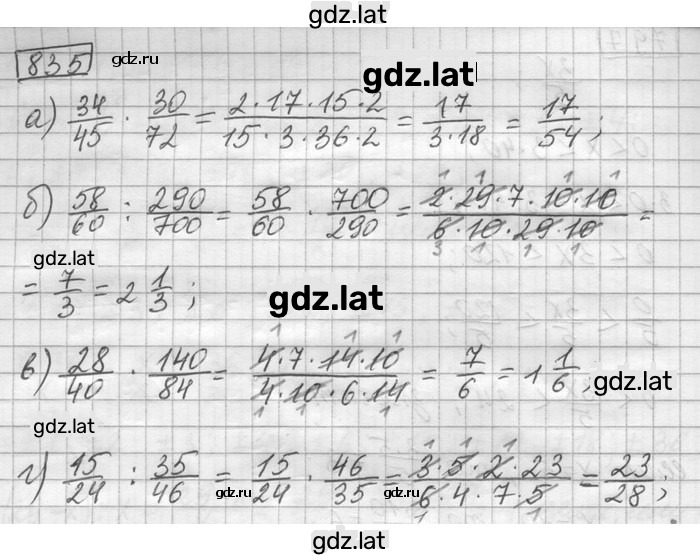 gdz.lat
835 gdz.ru gdz.lat
а) 34/45 · 30/72 = 2·17·15·2/15·3·36·2 = 17/3·18 = 17/54;
б) 58/60 : 290/700 = 58/60 · 700/290 = 2·29·7·10·10/6·10·29·10 =
gdz.lat
= 7/3 = 2 1/3; gdz.lat
в) 28/40 · 140/84 = 4·7·14·10/4·10·6·14 = 7/6 = 1 1/6; gdz.lat
gdz.lat
г) 15/24 : 35/46 = 15/24 · 46/35 = 3·5·2·23/6·4·7·5 = 23/28;
gdz.ru gdz.ru
gdz.lat